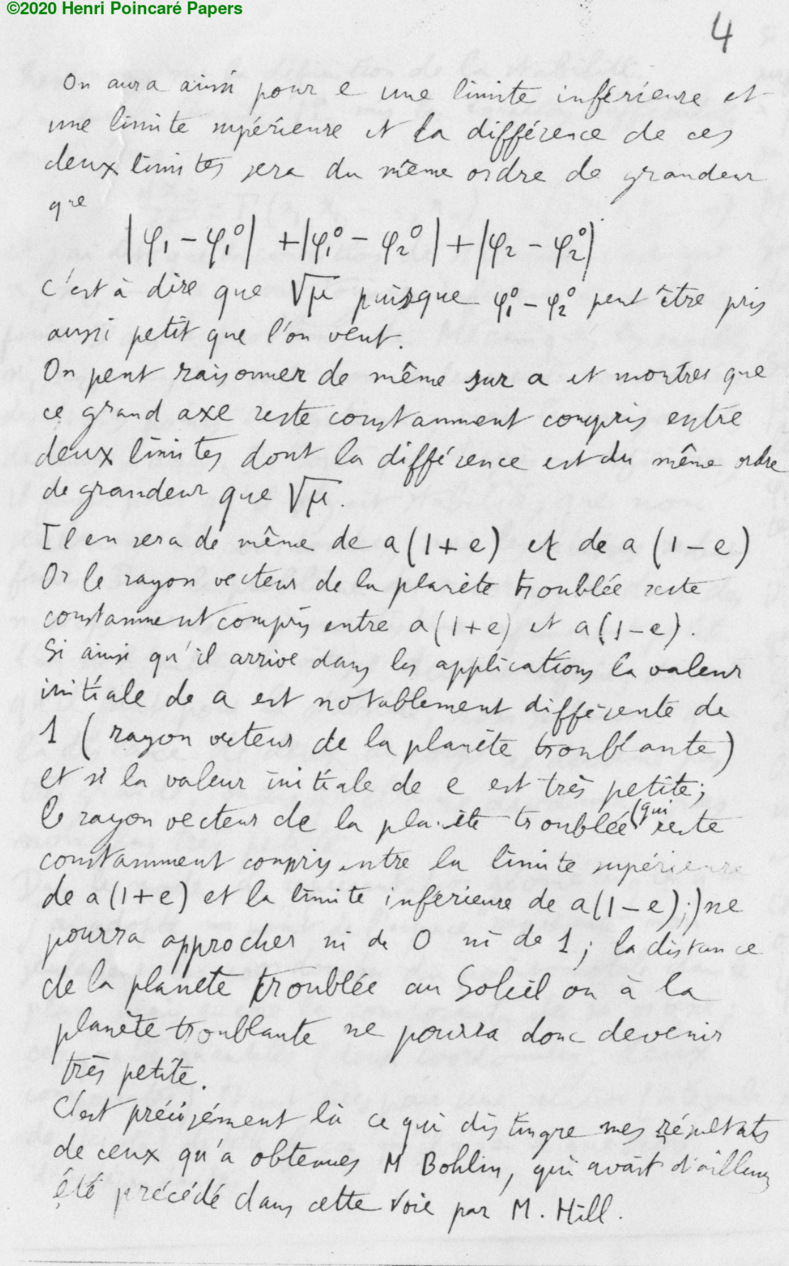 ©2020 Henri Poincaré Papers
4
On aura ainsi pour e une limite inférieure et
une limite supérieure et la différence de ces
deux limites sera du même ordre de grandeur
que
|φ₁ − φ₁⁰| + |φ₁⁰ − φ₂⁰| + |φ₂ − φ₂⁰|
c'est à dire que √μ puisque φ₁⁰ − φ₂⁰ peut être pris
aussi petit que l'on veut.
On peut raisonner de même sur a et montrer que
ce grand axe reste constamment compris entre
deux limites dont la différence est du même ordre
de grandeur que √μ.
Il en sera de même de a(1+e) et de a(1−e)
Or le rayon vecteur de la planète troublée reste
constamment compris entre a(1+e) et a(1−e).
Si ainsi qu'il arrive dans les applications la valeur
initiale de a est notablement différente de
1 (rayon vecteur de la planète troublante)
et si la valeur initiale de e est très petite;
le rayon vecteur de la planète troublée (qui reste
constamment compris entre la limite supérieure
de a(1+e) et la limite inférieure de a(1−e);) ne
pourra approcher ni de 0 ni de 1; la distance
de la planète troublée au Soleil ou à la
planète troublante ne pourra donc devenir
très petite.
C'est précisément là ce qui distingue mes résultats
de ceux qu'a obtenues M Bohlin, qui avait d'ailleurs
été précédé dans cette voie par M. Hill.